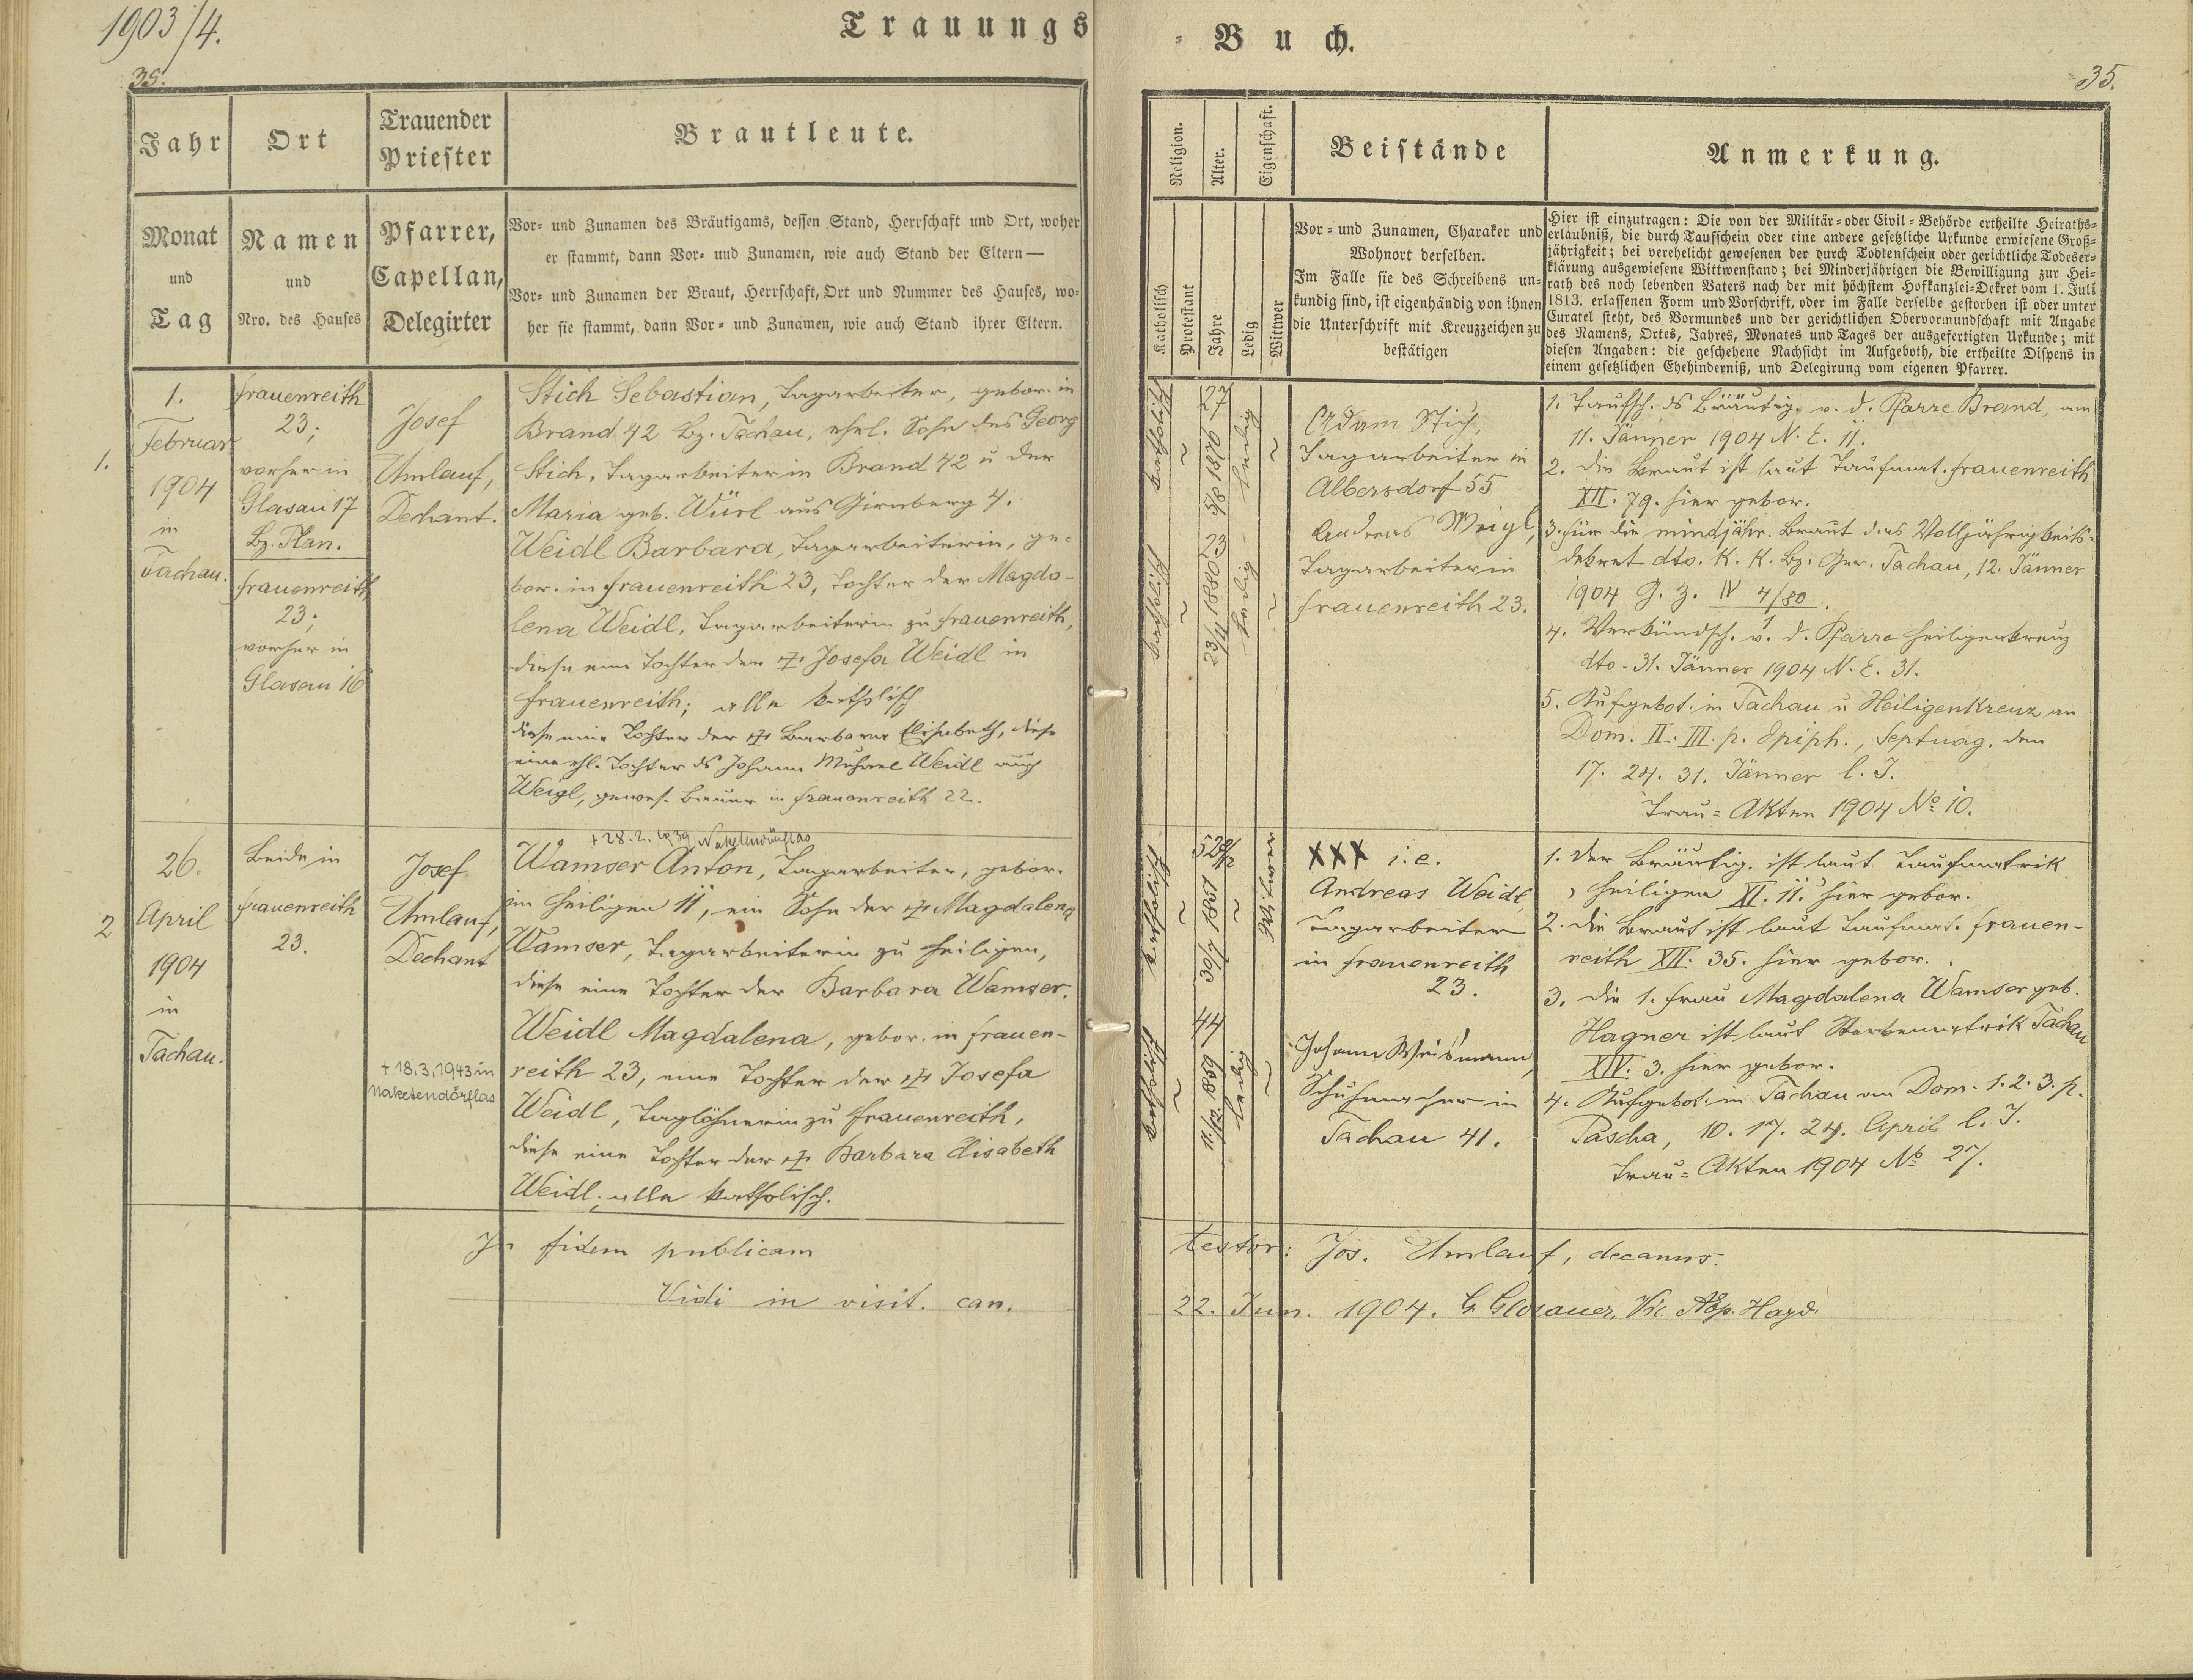 1903/4.
Trauungs
35.
Jahr
Ort
Trauender
Priester
Brautleute.
Monat
und
Tag
Namen
und
Nro. des Hauses
Pfarrer,
Capellan,
Delegirter
Vor- und Zunamen des Bräutigams, dessen Stand, Herrschaft und Ort, woher
er stammt, dann Vor- und Zunamen, wie auch Stand der Eltern—
Vor- und Zunamen der Braut, Herrschaft, Ort und Nummer des Hauses, wo-
her sie stammt, dann Vor- und Zunamen, wie auch Stand ihrer Eltern.
1.
1.
Februar
1904
in
Tachau.
Frauenreith
23;
vorher in
Glasau 17
Bz. Plan.
Frauenreith
23;
vorher in
Glasau 16
Josef
Umlauf,
Dechant.
Stich Sebastian, Tagarbeiter, gebor. in
Brand 42 Bz. Tachau, ehel. Sohn des Georg
Stich, Tagarbeiter in Brand 42 u der
Maria geb. Würl aus Girnberg 4.
Weidl Barbara, Tagarbeiterin, ge-
bor. in Frauenreith 23, Tochter der Magda-
lena Weidl, Tagarbeiterin zu Frauenreith,
diese eine Tochter der † Josefa Weidl in
Frauenreith; alle katholisch
diese eine Tochter der † Barbara Elisabeth, diese
eine ehl. Tochter ds Johann Michael Weidl auch
Weigl, gewes. Bauer in Frauenreith 22.
2
26.
April
1904
in
Tachau.
Beide in
Frauenreith
23.
Josef
Umlauf,
Dechant
+ 18.3.1943 in
Naketendörflas
+ 28. 2. 1939
Wamser Anton, Tagarbeiter, gebor.
in Heiligen 11, ein Sohn der † Magdalena
Wamser, Tagarbeiterin zu Heiligen,
diese eine Tochter der Barbara Wamser.
Weidl Magdalena, gebor. in Frauen-
reith 23, eine Tochter der † Josefa
Weidl, Taglöhnerin zu Frauenreith,
diese eine Tochter der † Barbara Elisabeth
Weidl; alle katholisch.
In fidem publicam
Vidi in visit. can.
- Buch.
35.
Religion.
Alter.
Eigenschaft.
Beistände
Anmerkung.
Katholisch
Protestant
Jahre
Ledig
Wittwer
Vor- und Zunamen, Charaker und
Wohnort derselben.
Im Falle sie des Schreibens un-
kundig sind, ist eigenhändig von ihnen
die Unterschrift mit Kreuzzeichen zu
bestätigen
Hier ist einzutragen: Die von der Militär- oder Civil-Behörde ertheilte Heiraths-
erlaubniß, die durch Taufschein oder eine andere gesetzliche Urkunde erwiesene Groß-
jährigkeit; bei verehelicht gewesenen der durch Todtenschein oder gerichtliche Todeser-
klärung ausgewiesene Wittwenstand; bei Minderjährigen die Bewilligung zur Hei-
rath des noch lebenden Vaters nach der mit höchstem Hofkanzlei-Dekret vom 1. Juli
1813. erlassenen Form und Vorschrift, oder im Falle derselbe gestorben ist oder unter
Curatel steht, des Vormundes und der gerichtlichen Obervormundschaft mit Angabe
des Namens, Ortes, Jahres, Monates und Tages der ausgefertigten Urkunde; mit
diesen Angaben: die geschehene Nachsicht im Aufgeboth, die ertheilte Dispens in
einem gesetzlichen Ehehinderniß, und Delegirung vom eigenen Pfarrer.
katholisch
27
1876
ledig
katholisch
23
23/11 1880
ledig
Adam Stich,
Tagarbeiter in
Albersdorf 55
Andreas Weigl,
Tagarbeiter in
Frauenreith 23.
1. Taufsch. ds Bräutig. v. d. Pfarre Brand, am
11. Jänner 1904 N. E. 11.
2. Die Braut ist laut Taufmat. Frauenreith
XII. 79. hier gebor.
3. Für die mindjähr. Braut das Volljährigkeits-
dekret dto. K. K. Bz. Ger. Tachau, 12. Jänner
1904 G. Z. IV 4/80
1
4. Verkündsch. v. d. Pfarre Heiligenkreuz
dto. 31. Jänner 1904 N. E. 31.
5. Aufgebot: in Tachau u Heiligenkreuz an
Dom. II. III. p. Epiph., Septuag. den
17. 24. 31. Jänner l. J.
Trau-Akten 1904 No 10.
katholisch
1851
Witwer
katholisch
44
11/12. 1859
ledig
XXX i. e.
Andreas Weidl,
Tagarbeiter
in Frauenreith
23.
Johann Weismann,
Schuhmacher in
Tachau 41.
1. Der Bräutig. ist laut Taufmatrik
Heiligen XI. 11. hier gebor.
2. Die Braut ist laut Taufmat. Frauen-
reith XII. 35. hier gebor.
3. Die 1. Frau Magdalena Wamser geb.
Hagner ist laut Sterbematrik Tachau
XIV. 3. hier gebor.
4. Aufgebot: in Tachau an Dom. 1. 2. 3. p.
Pascha, 10. 17. 24. April l. J.
Trau-Akten 1904 No 27.
testor: Jos. Umlauf, decanus.
22. Jun. 1904. G. Glosauer, Vic. Hayd.